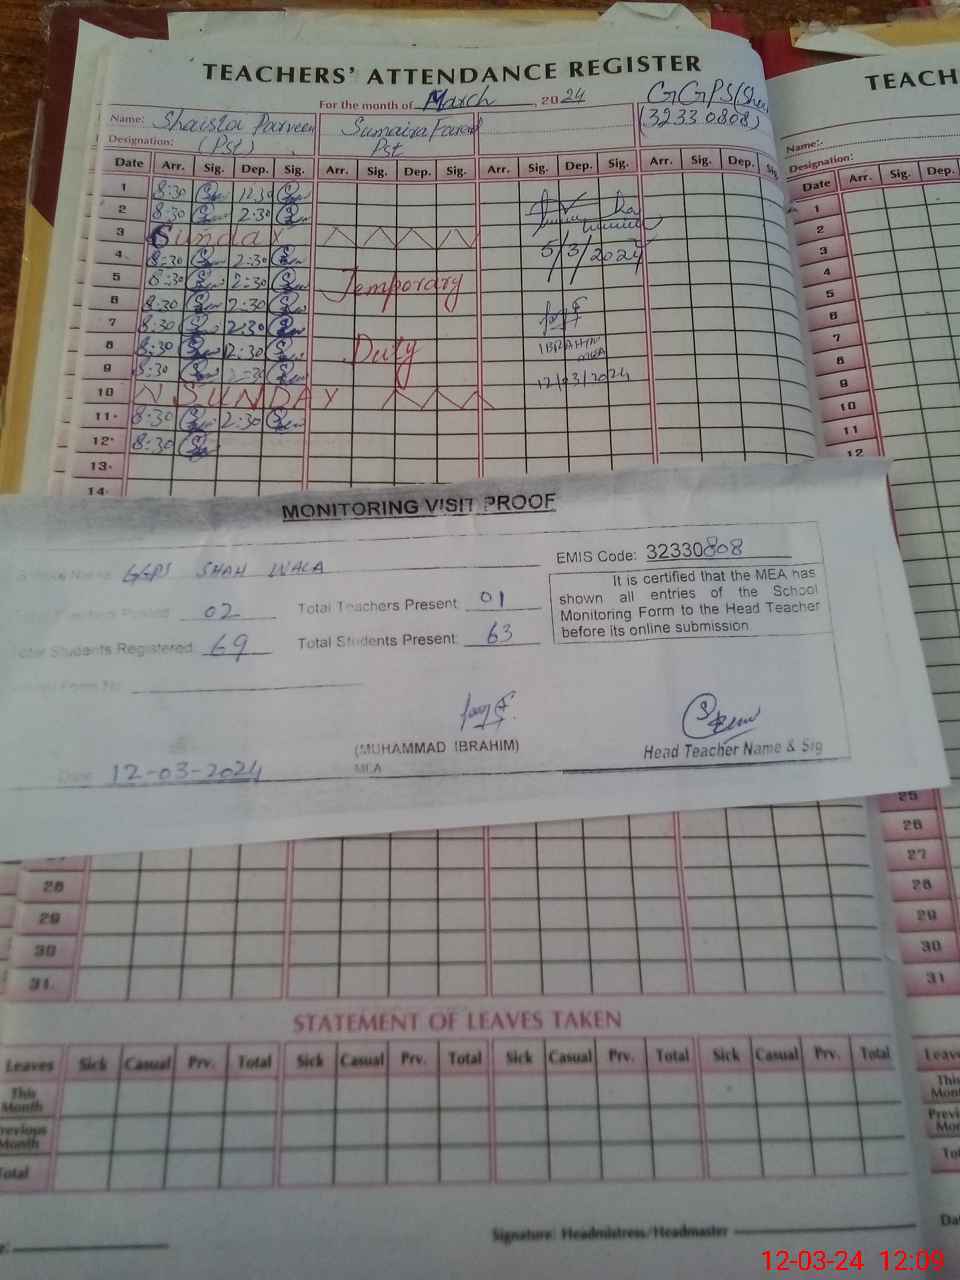 TEACHERS' ATTENDANCE REGISTER
For the month of March, 2024
GGPS/
(32330808)
Name: Shaista Parveen Sumaira
Designation: (Pst) Pst
Date Arr. Sig. Dep. Sig. Arr. Sig. Dep. Sig. Arr. Sig. Dep. Sig. Arr. Sig. Dep. Sig.
1 8:30 12:30
2 8:30 2:30
3 Sunday
4 8:30 2:30 5/3/2024
5 8:30 2:30 Temporary
6 8:30 2:30
7 8:30 2:30
8 8:30 2:30 Duty IBRAHIM
MEA
9 8:30 2:30 12/03/2024
10 SUNDAY
11 8:30 2:30
12 8:30
13
14
TEACH
Name:-
Designation:
Date Arr. Sig. Dep.
1
2
3
4
5
6
7
8
9
10
11
12
MONITORING VISIT PROOF
GGPS SHAH WALA
EMIS Code: 32330808
02
Total Teachers Present: 01
Students Registered: 69
Total Students Present: 63
It is certified that the MEA has
shown all entries of the School
Monitoring Form to the Head Teacher
before its online submission.
(MUHAMMAD IBRAHIM)
MEA
Head Teacher Name & Sig
Date: 12-03-2024
28
29
30
31.
25
26
27
28
29
30
31
STATEMENT OF LEAVES TAKEN
Leaves Sick Casual Prv. Total Sick Casual Prv. Total Sick Casual Prv. Total Sick Casual Prv. Total
This Month
Previous Month
Total
Signature: Headmistress/Headmaster
12-03-24 12:09